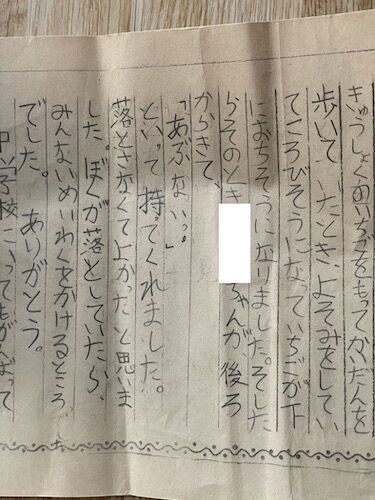 きゅうしょくのいちごをもってかいだんを
歩いていたとき、よそみをしてい
てころびそうになっていちごが下
におちそうになりました。そした
らそのとき ちゃんが後ろ
からきて、
「あぶないっ。」
といって持ってくれました。
落とさなくて上かったと思いま
した。ぼくが落としていたら、
みんないめいわくをかけるところ
でした。ありがとう。
中学校にいってもがんばって